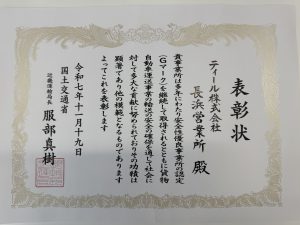 表彰状
ティール株式会社
長浜営業所 殿
貴事業所は多年にわたり安全性優良事業所の認定
(Gマーク)を継続して取得されるとともに貨物
自動車運送事業の輸送の安全の確保を通して社会に
対して多大な貢献に努められておりその功績は
顕著であり他の模範となるものであります
よってこれを表彰します
令和七年十一月十九日
国土交通省
近畿運輸局長 服部真樹